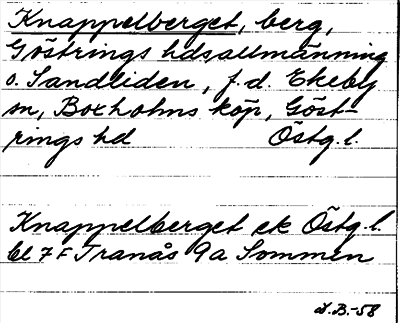 Knappelberget, berg,
Göstrings hdsallmänning
o. Sandliden, f.d. Ekeby
sn, Boxholms köp, Göst-
rings hd Östg.l.
Knappelberget ek Östg.l.
bl 7 F Tranås 9a Sommen
S.B.-58